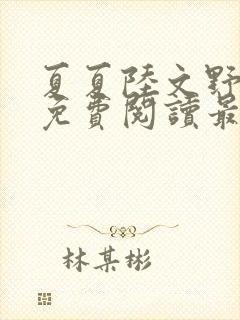 夏夏陸文野
免費閱讀最
林某彬